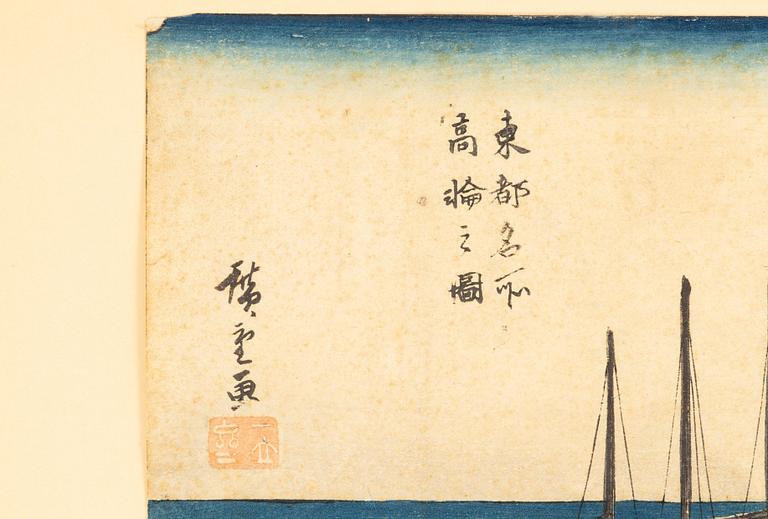 東都名所
高輪之圖
廣重画
一立
齋